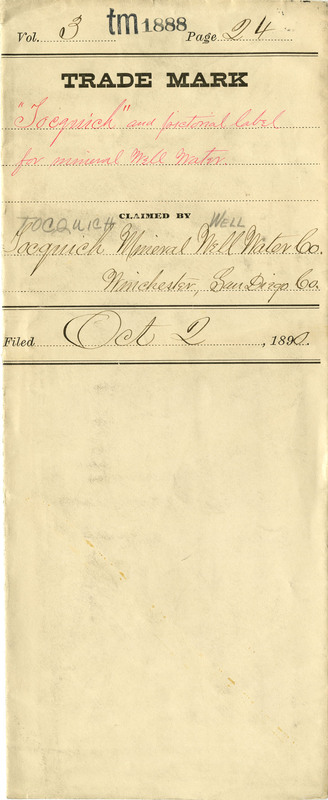 Vol. 3 tm 1888 Page 24
TRADE MARK
"Tocquich" and pictorial label
for mineral Well Water
CLAIMED BY
TOCQUICH WELL
Tocquich Mineral Well Water Co.
Winchester, San Diego Co.
Filed Oct 2, 1890.